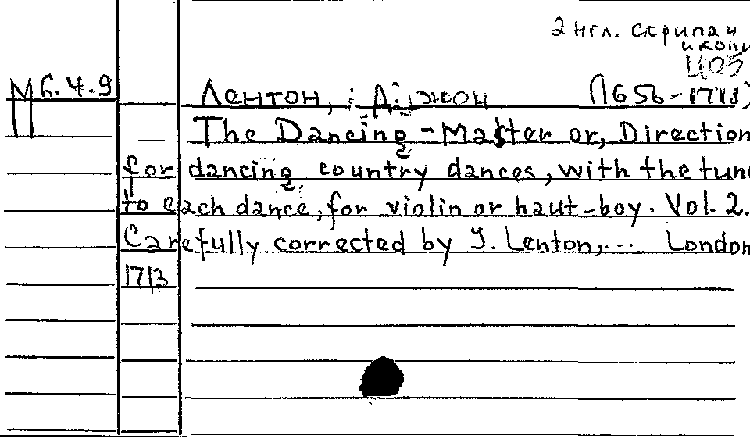 2 нгл. скрипач
икони
ЦОЗ
М 6.4.9
Лентон, Джон (1656-1713)
The Dancing-Master or, Direction
for dancing country dances, with the tune
to each dance, for violin or haut-boy. Vol. 2.
Carefully corrected by J. Lenton,... London
1713